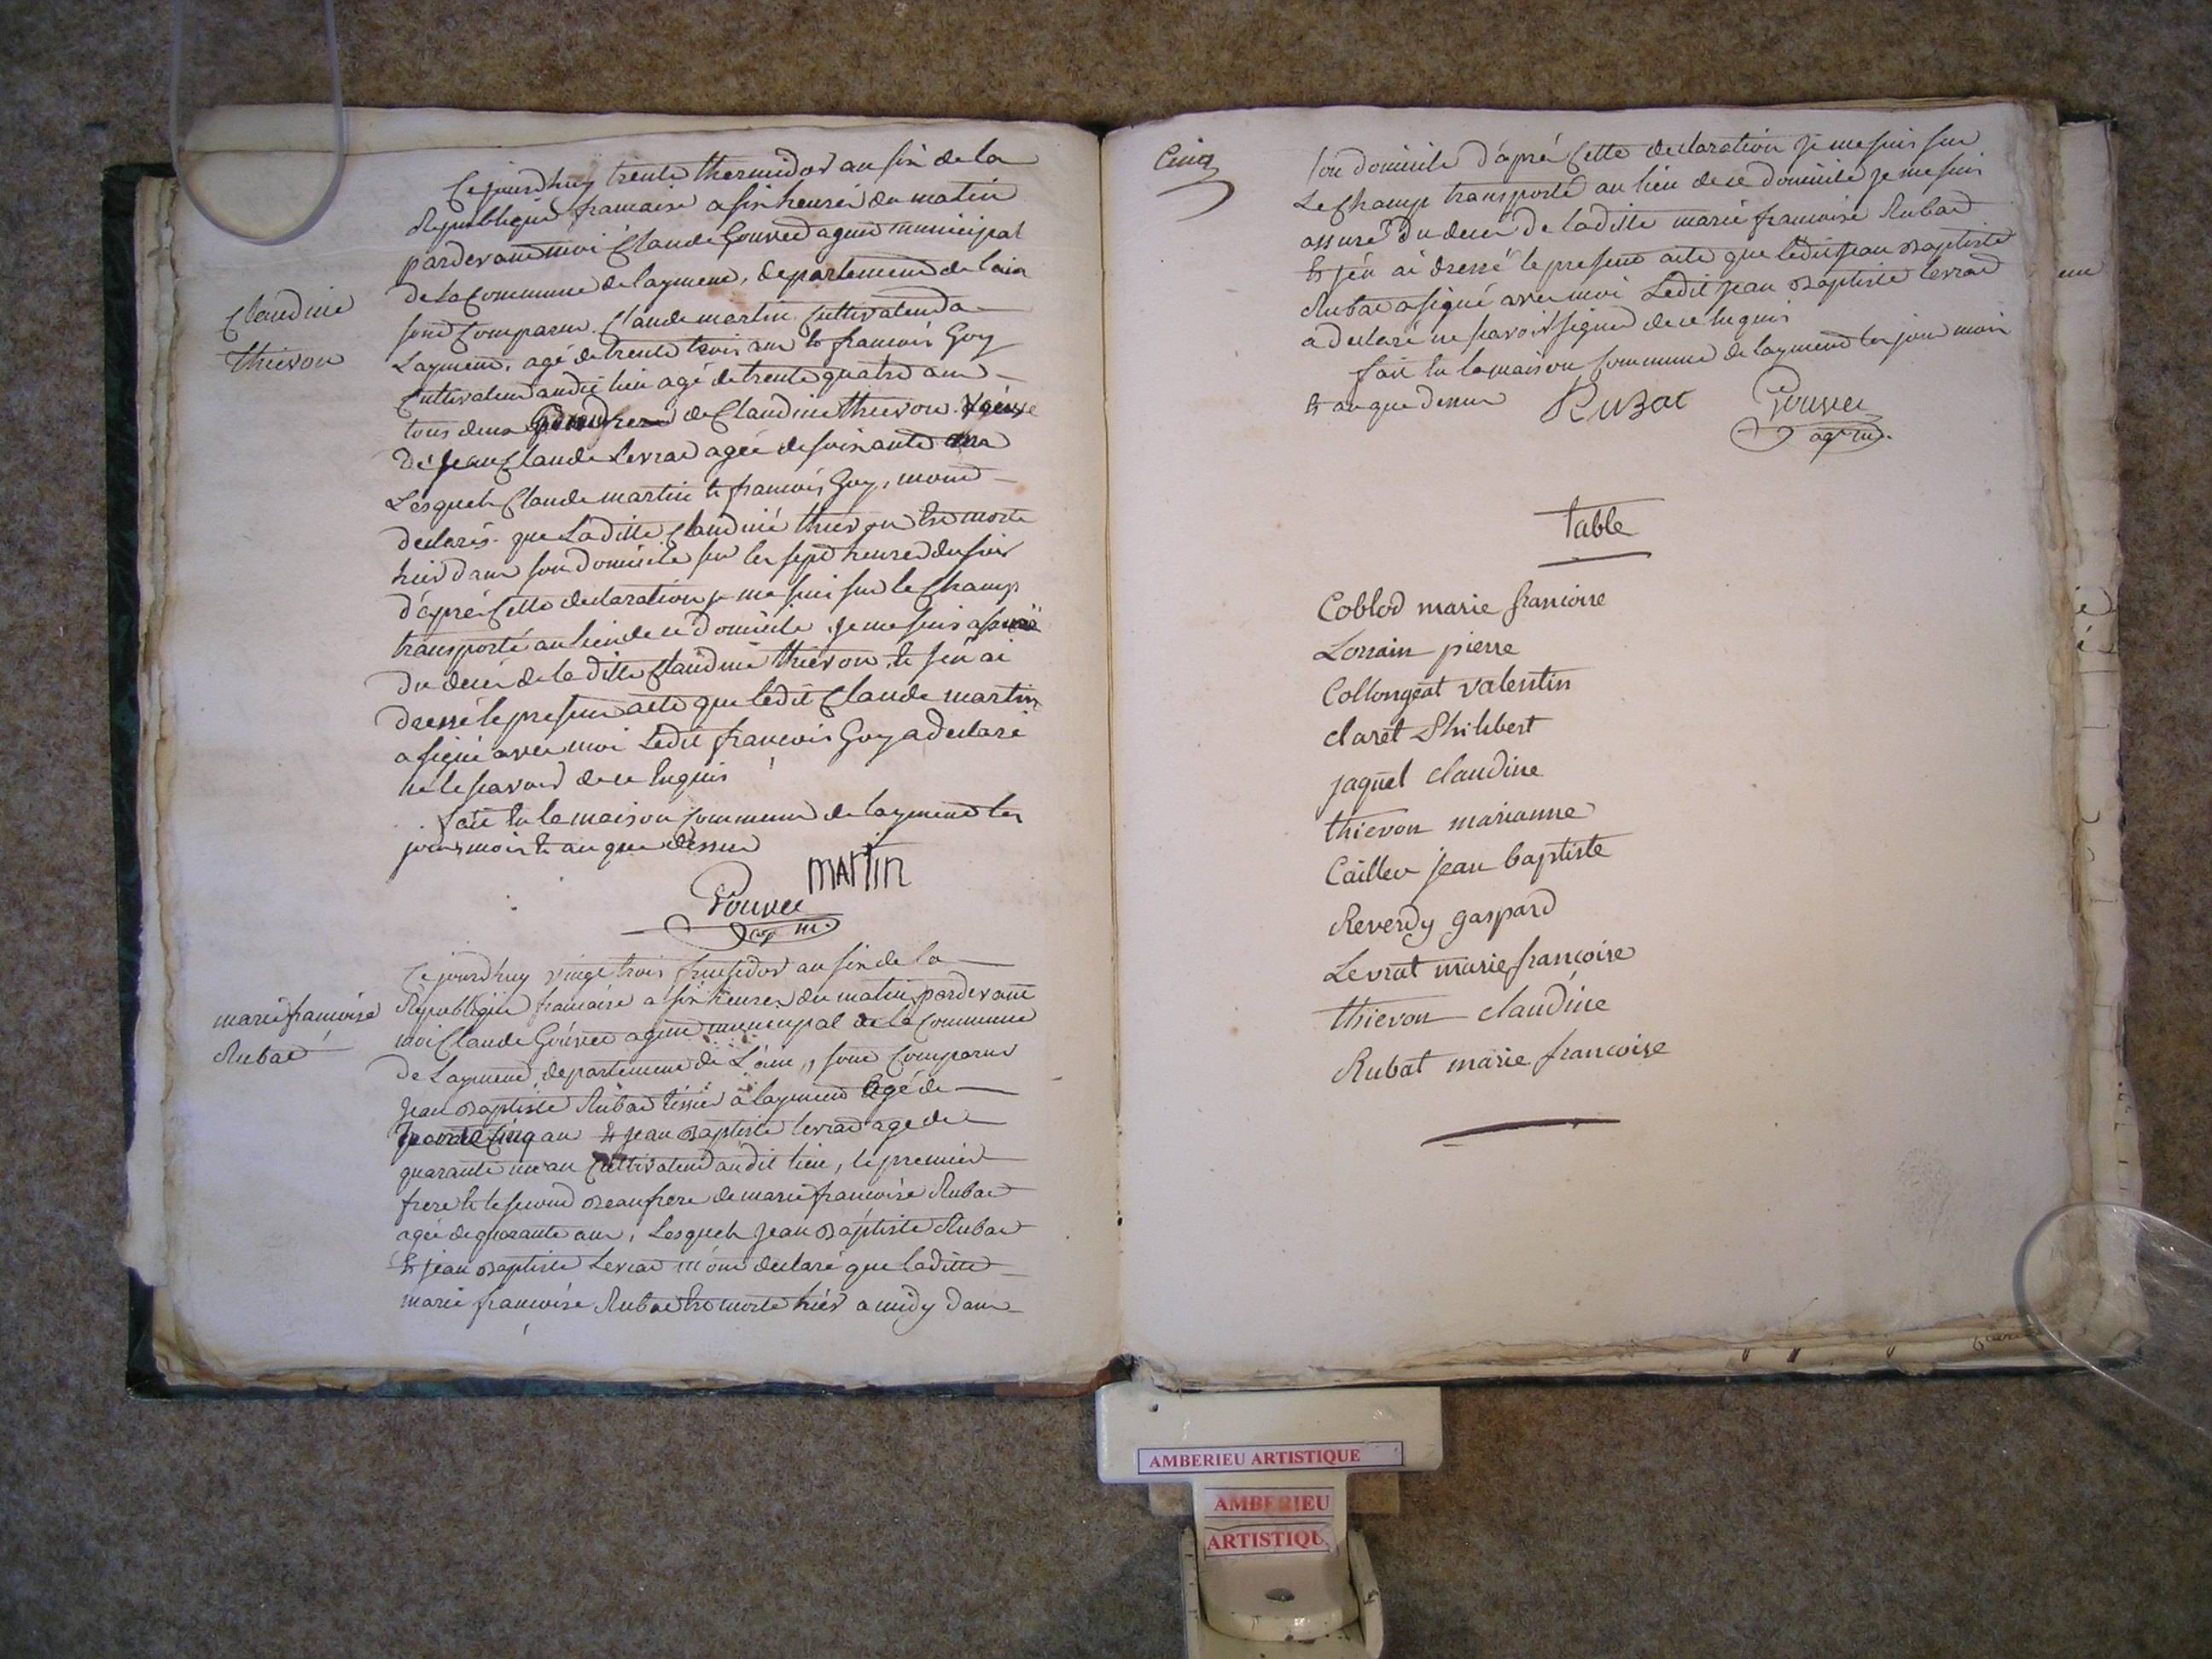 Claudine
thievon
Ce jourdhuy trente thermidor an six de la
Republique francaise a six heures du matin
pardevant moi Claude Gouvee agent municipal
de la Commune de laymene, departement de lain
sont Comparu Claude martin Cultivateur a
Laymene, agé de trente trois ans et francois Goy
Cultivateur audit lieu agé de trente quatre ans
tous deux de Claudine thievon veuve
de jean Claude Levrat agée de soixante ans
Lesquels Claude martin et francois Goy, mont
declarés que Laditte Claudine thievon est morte
hier dans son domicile sur les sept heures du soir
d'aprés Cette declaration je me suis sur le Champ
transporté au lieu de ce domicile, je me suis assuré
du decés de la ditte Claudine thievon, et j'en ai
dressé le present acte que ledit Claude martin
a signé avec moi Ledit francois Goy a declaré
ne le savoir de ce Enquis
fait en la maison Commune de laymene les
jours mois et an que dessus
martin
Gouvee
ag m.
marie francoise
Rubat
Ce jourdhuy vingt trois fructidor an six de la
Republique francaise a six heures du matin pardevant
moi Claude Gouvee agent municipal de la Commune
de Laymene, departement de L'ain, sont Comparus
Jean Baptiste Rubat tissier a laymene agé de
cinq an et jean Baptiste levrat age de
quarante un an Cultivateur audit lieu, le premier
frere et le second Beaufrere de marie francoise Rubat
agée de quarante ans, Lesquels Jean Baptiste Rubat
et jean Baptiste Levrat m'ont declaré que laditte
marie francoise Rubat est morte hier a midy dans
Cinq
son domicile d'aprés Cette declaration je me suis sur
Le Champ transporté au lieu de ce domicile je me suis
assuré du deces de laditte marie francoise Rubat
et j'en ai dressé le present acte que ledit jean Baptiste
Rubat a signé avec moi Ledit jean Baptiste levrat
a declaré ne savoir signer de ce Enquis
fait en la maison Commune de laymene les jour mois
et an que dessus Rubat Gouvee
agt m.
table
Coblod marie francoise
Lorrain pierre
Collongeat valentin
claret Philibert
jaquet claudine
thievon marianne
Cailler jean baptiste
Reverdy gaspard
Levrat marie françoise
thievon claudine
Rubat marie francoise
AMBERIEU ARTISTIQUE
AMBERIEU
ARTISTIQU